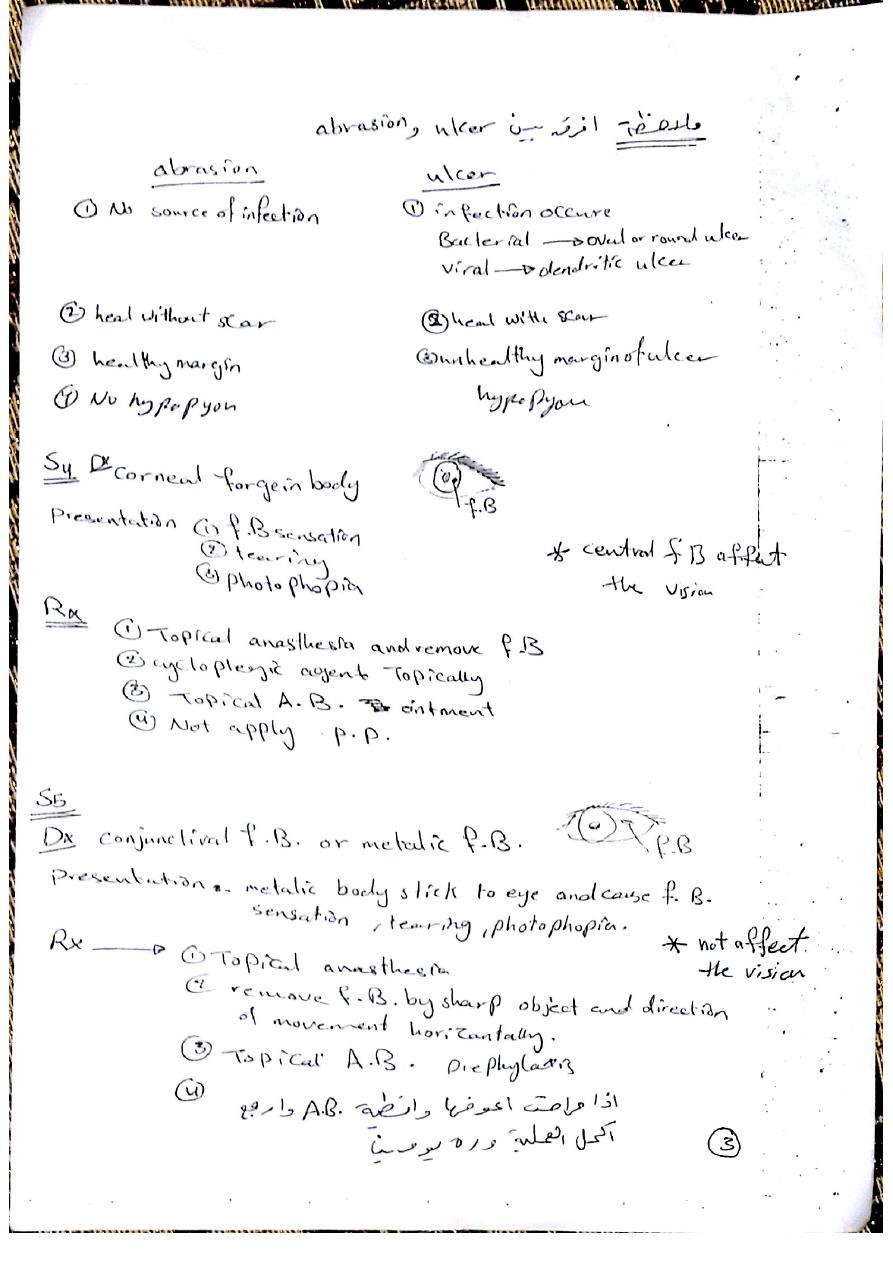 ملاحظة افرق بين ulcer و abrasion
abrasion
① No source of infection
② heal without scar
③ healthy margin
④ No hypopyon
ulcer
① infection occure
Bacterial → oval or round ulcer
viral → dendritic ulcer
② heal with scar
③ unhealthy margin of ulcer
hypopyon
S4 Dx Corneal forgein body
f.B
Presentation ① f.B sensation
② tearing
③ photophopia
* central f B affect
the vision
Rx
① Topical anasthesia and remove f.B
② cycloplegic agent Topically
③ Topical A.B. ointment
④ Not apply p.p.
S5
Dx conjunctival f.B. or metalic f.B.
f.B
Presentation:- metalic body stick to eye and cause f.B.
sensation, tearing, photophopia.
* not affect
the vision
Rx → ① Topical anasthesia
② remove f.B. by sharp object and direction
of movement horizantally.
③ Topical A.B. prephylaxis
④ اذا مراحت اعوفها وانطية A.B. وارجع
اكمل العملية وره يومين
③